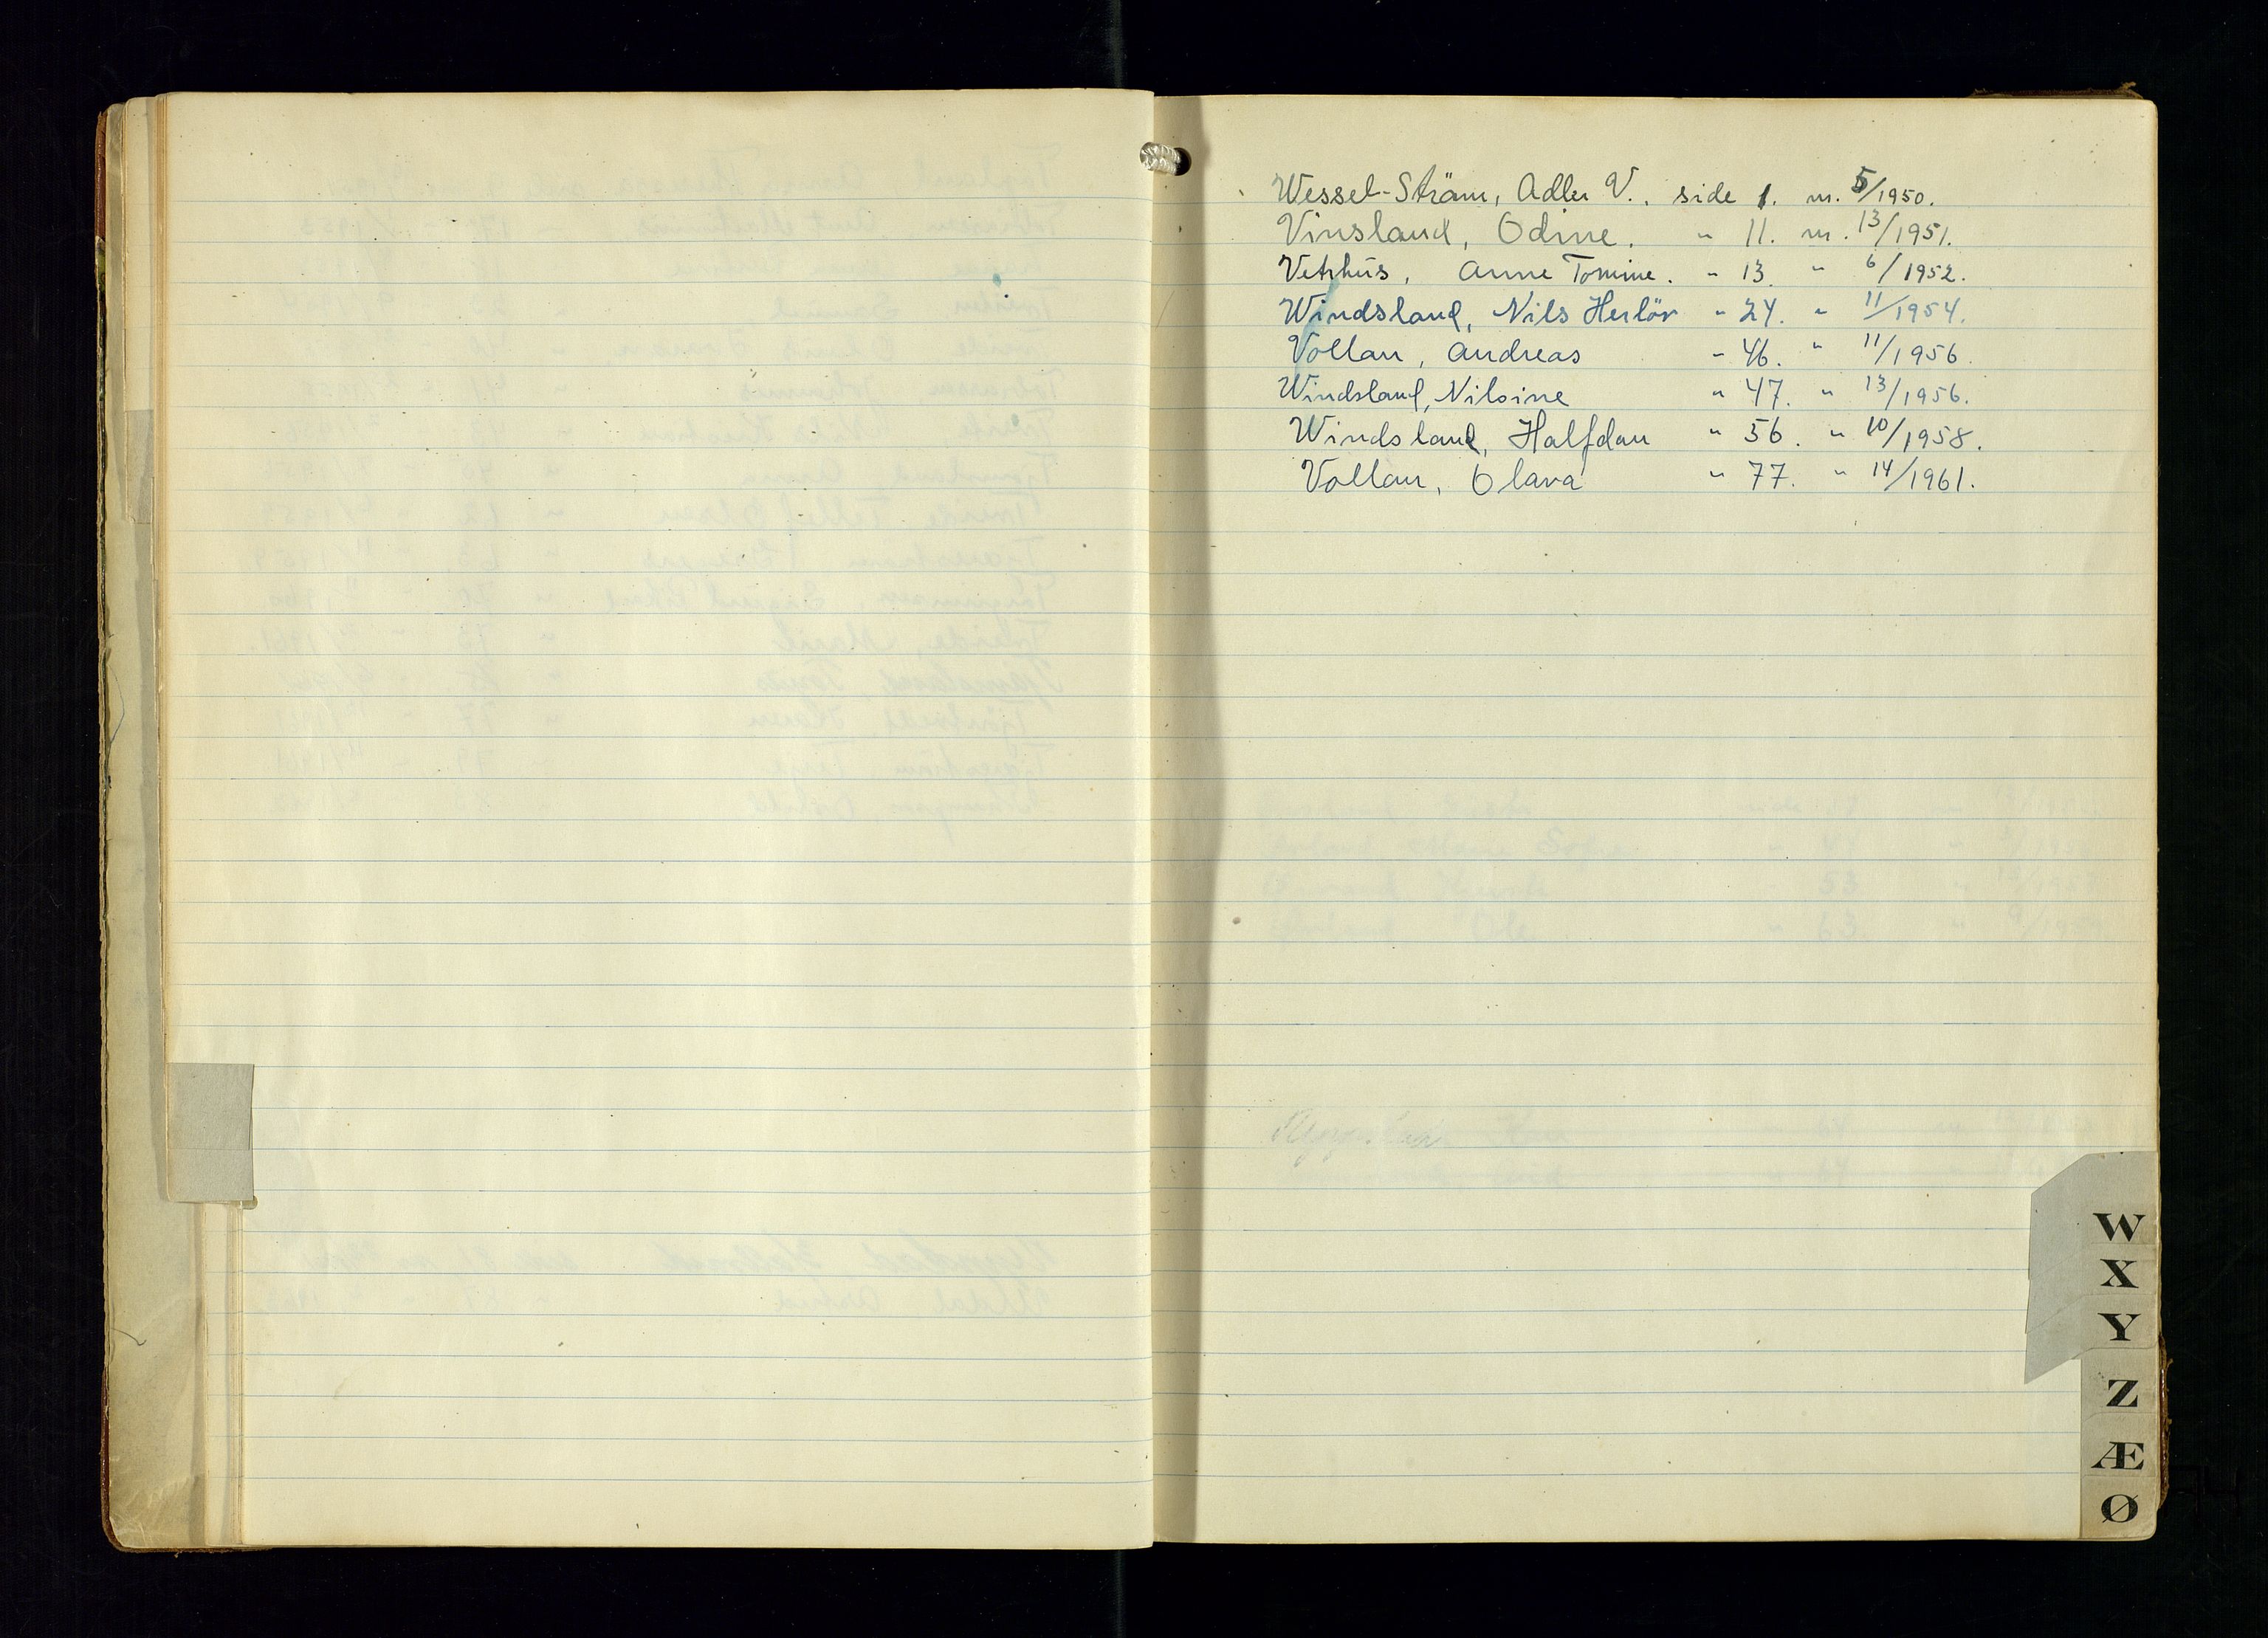 Wessel-Ström, Adler V., side 1. nr. 5/1950.
Vinsland, Odine. " 11. nr. 13/1951.
Vetrhús, Anne Tomine. " 13. " 6/1952.
Windsland, Nils Herlöv " 24. " 11/1954.
Vollan, Andreas " 46. " 11/1956.
Windsland, Nilsine " 47. " 13/1956.
Windsland, Halfdan " 56. " 10/1958.
Vollan, Olava " 77. " 14/1961.
W
X
Y
Z
Æ
Ø